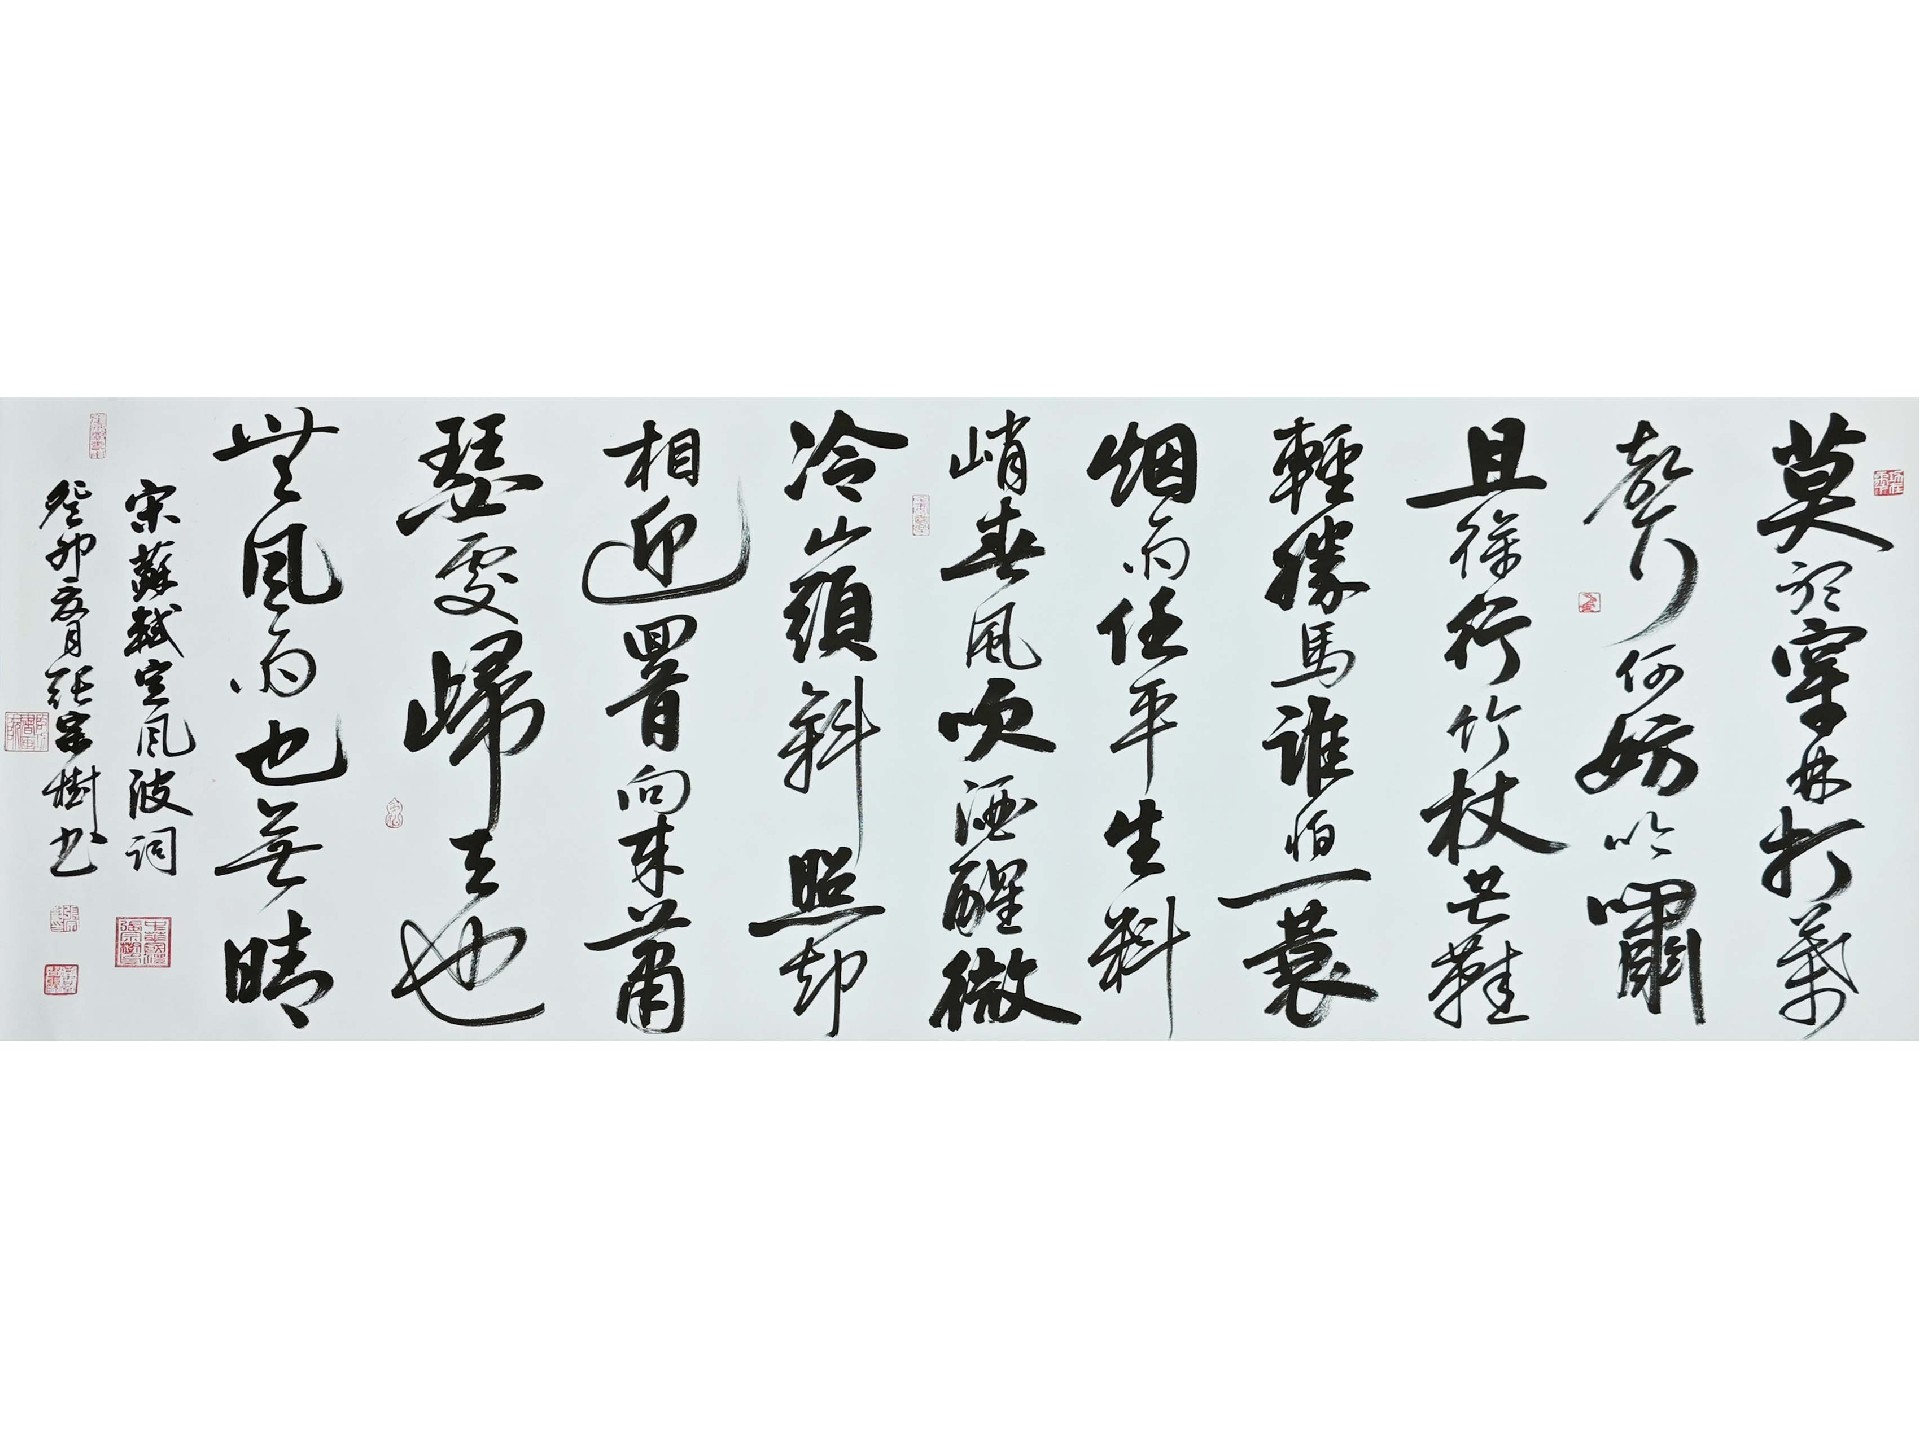 莫聽穿林打葉
聲何妨吟嘯
且徐行竹杖芒鞋
輕勝馬誰怕一蓑
烟雨任平生料
峭春風吹酒醒微
冷山頭斜照却
相迎回首向來蕭
瑟處歸去也
無風雨也無晴
宋蘇軾定風波詞
癸卯夏月張宗樹书